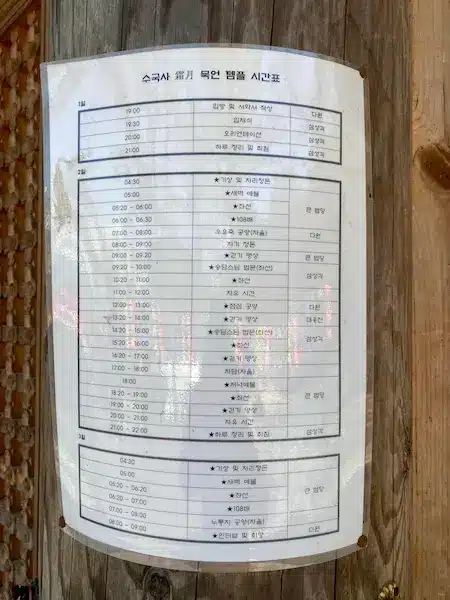 수국사 霜月 묵언 템플 시간표
1일
19:00 입방 및 서약서 작성 다원
19:30 입재식 금성각
20:00 오리엔테이션 금성각
21:00 하루 정리 및 취침 금성각
2일
04:30 ★기상 및 자리정돈
05:00 ★새벽 예불 큰 법당
05:20 - 06:00 ★좌선
06:00 - 06:30 ★108배
07:00 - 08:00 공양(자율) 다원
08:00 - 09:00 자기 정돈
09:00 - 09:20 ★걷기 명상 큰 법당
09:20 - 10:00 법문(좌선) 금성각
10:20 - 11:00 ★좌선
11:00 - 12:00 자유 시간
12:00 - 13:00 ★점심 공양 다원
13:20 - 14:00 ★걷기 명상
14:20 - 15:00 법문(좌선) 금성각
15:20 - 16:00 ★좌선
16:20 - 17:00 ★걷기 명상
17:00 - 18:00 저녁(자율)
18:00 ★저녁예불
18:20 - 19:00 ★좌선 큰 법당
19:00 - 20:00 ★걷기 명상
20:00 - 21:00 자유 시간
21:00 - 22:00 ★하루 정리 및 취침 금성각
3일
04:30 ★기상 및 자리정돈
05:00 ★새벽 예불
05:20 - 06:20 ★좌선 큰 법당
06:20 - 07:00 ★108배
07:00 - 08:00 누룽지 공양(자율)
08:00 - 09:00 ★인터뷰 및 회향 다원